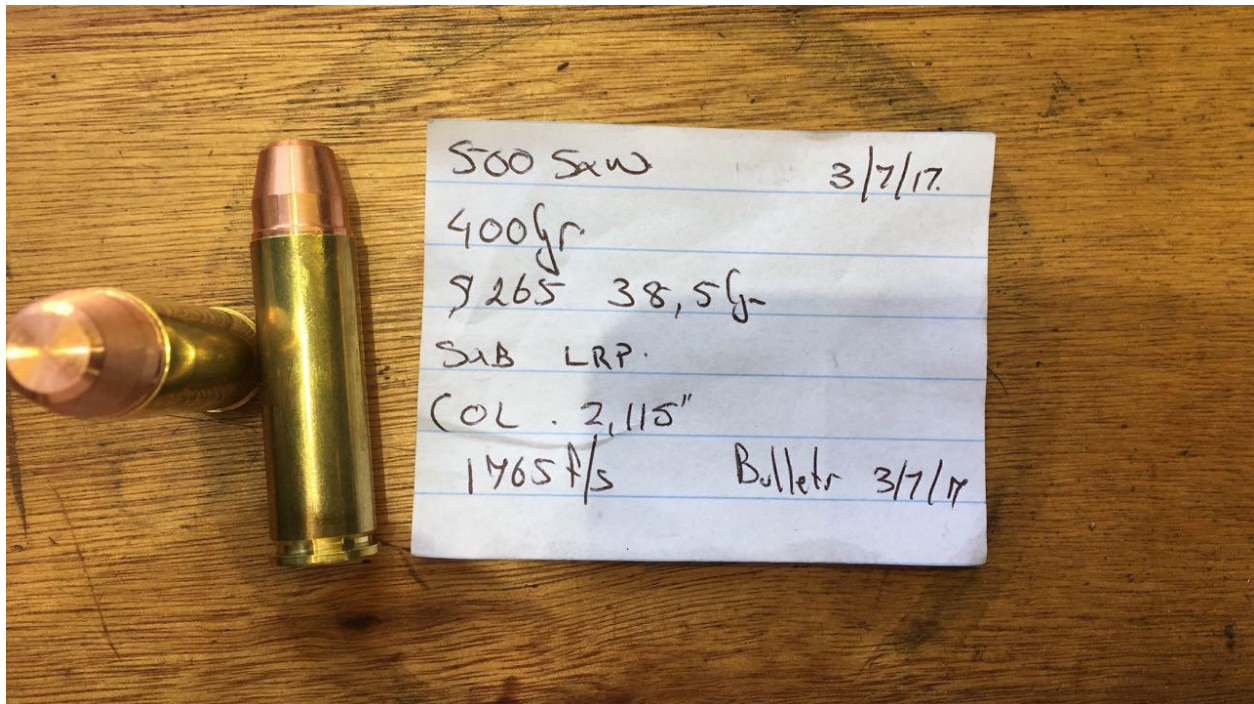 500 S&W 3/7/17.
400Gr.
S265 38,5Gr
S&B LRP.
COL. 2,115"
1765 f/s Bullets 3/7/17